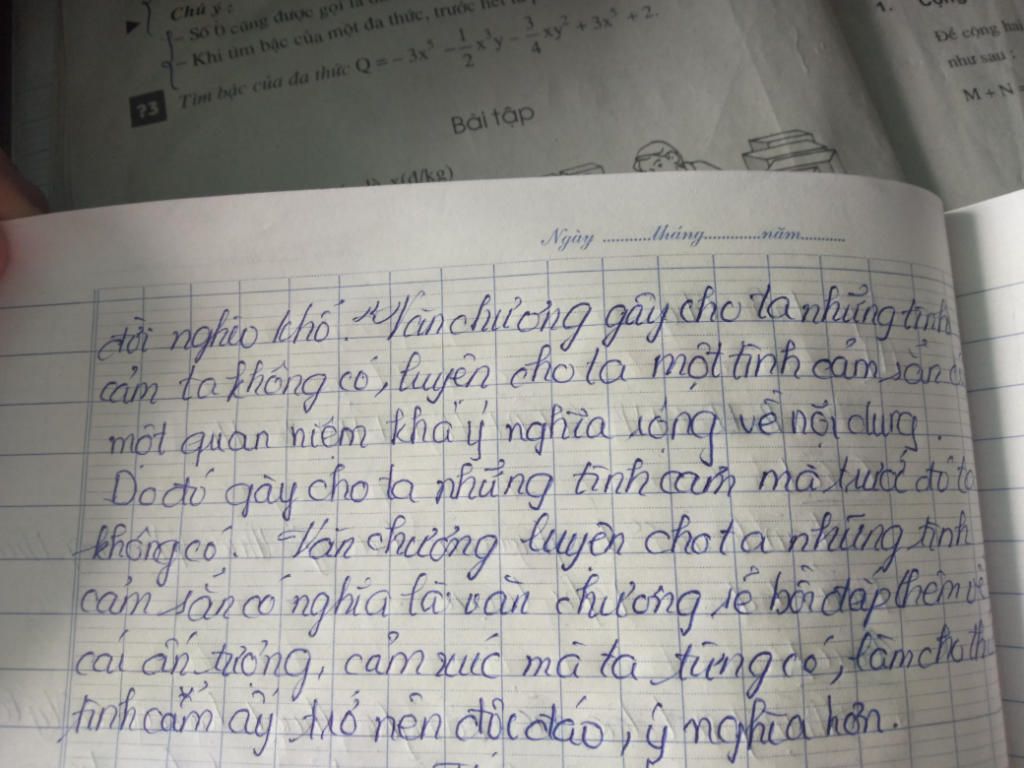 Chú ý :
– Số 0 cũng được gọi là đ
– Khi tìm bậc của một đa thức, trước hết
?3 Tìm bậc của đa thức Q = – 3x⁵ – 1/2 x³y – 3/4 xy² + 3x⁵ + 2.
Bài tập
x(đ/kg)
1.
Để cộng hai
như sau :
M + N =
Ngày ...........tháng.............năm..........
đời nghèo khổ. Văn chương gây cho ta những tình
cảm ta không có, luyện cho ta một tình cảm sẵn có
một quan niệm khá ý nghĩa sống về nội dung.
Do đó gây cho ta những tình cảm mà trước đó ta
không có. Văn chương luyện cho ta những tình
cảm sẵn có nghĩa là văn chương sẽ bồi đắp thêm về
cái ấn tượng, cảm xúc mà ta từng có, làm cho
tình cảm ấy trở nên độc đáo, ý nghĩa hơn.